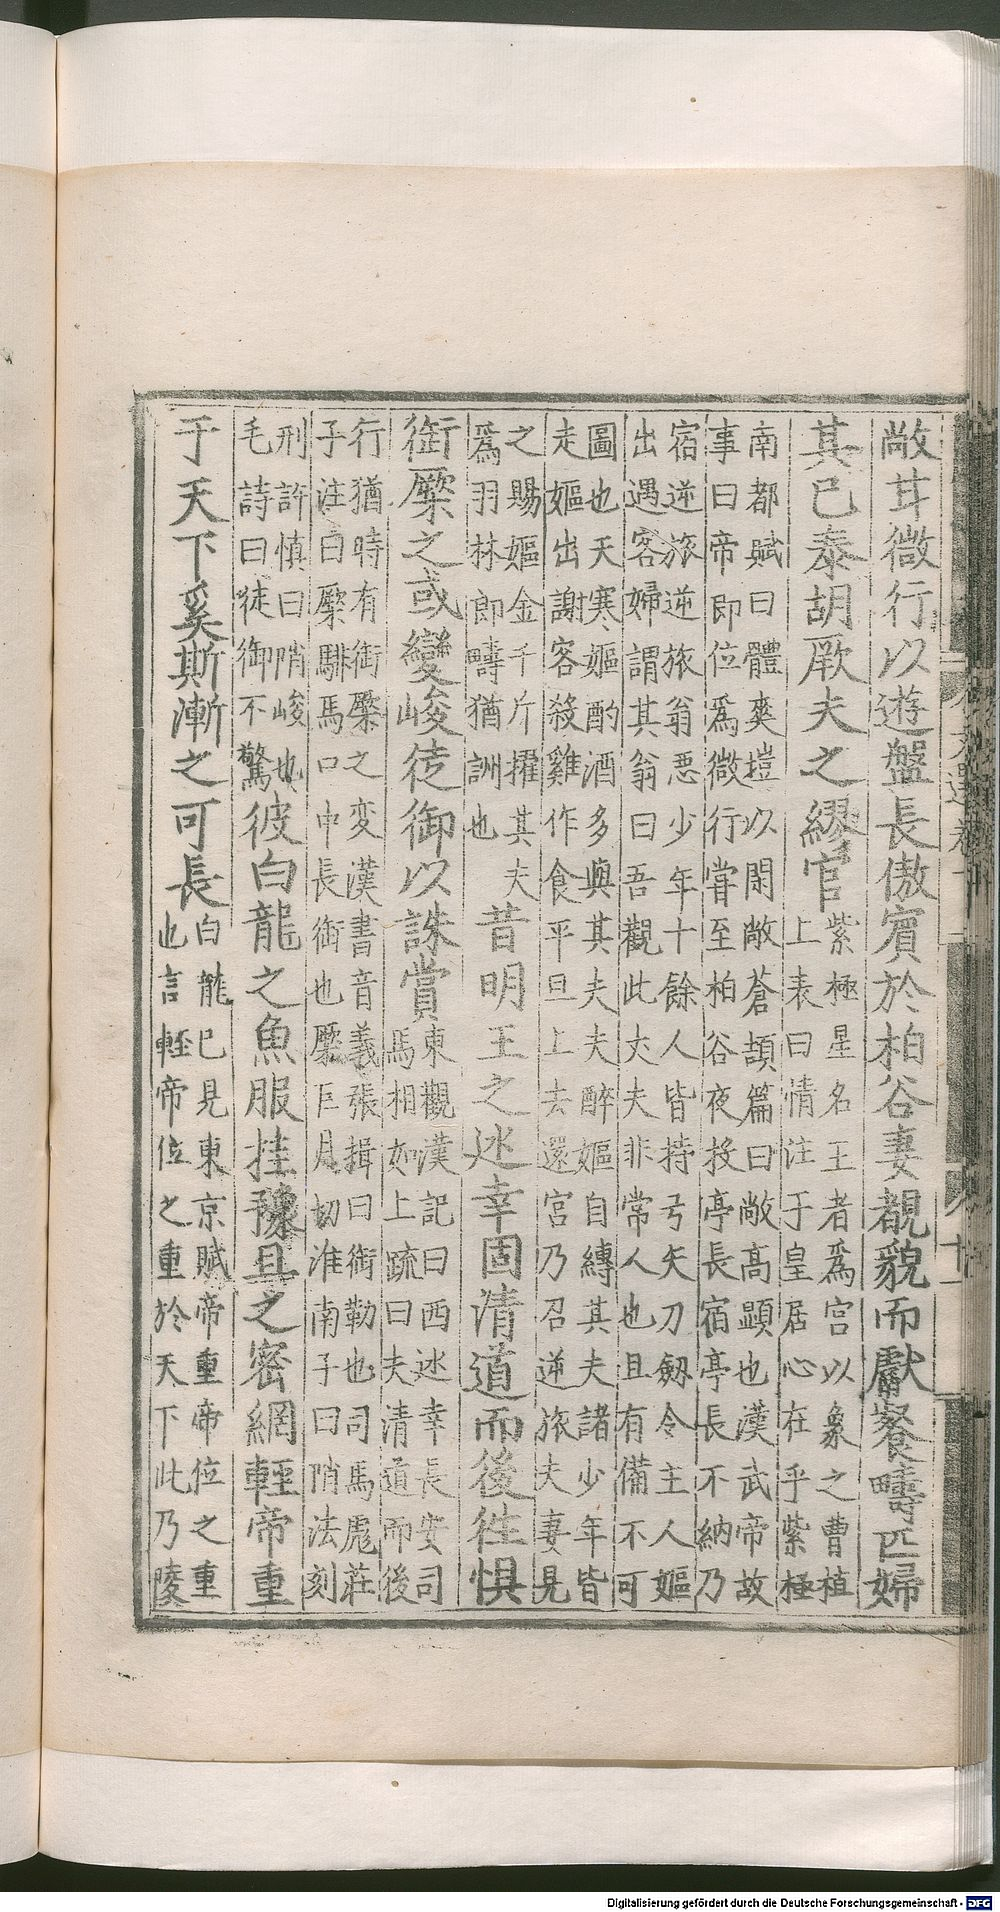 敞甘微行以遊盤長傲賓於柏谷妻覩貌而獻餐疇匹婦
其已泰胡厥夫之繆官
紫極星名王者爲宫以象之曹植
上表曰情注于皇居心在乎紫極
南都賦曰體爽塏以閑敞蒼頡篇曰敞高顯也漢武帝故
事曰帝即位爲微行嘗至柏谷夜投亭長宿亭長不納乃
宿逆旅逆旅翁惡少年十餘人皆持弓矢刀劒令主人嫗
出遇客婦謂其翁曰吾觀此丈夫非常人也且有備不可
圖也天寒嫗酌酒多與其夫夫醉嫗自縛其夫諸少年皆
走嫗出謝客殺雞作食平旦上去還宫乃召逆旅夫妻見
之賜嫗金千斤擢其夫
爲羽林郎疇猶詶也
昔明王之巡幸固清道而後徃惧
銜橜之或變峻徒御以誅賞
東觀漢記曰西巡幸長安司
馬相如上疏曰夫清道而後
行猶時有銜橜之变漢書音義張揖曰銜勒也司馬彪莊
子注曰橜騑馬口中長銜也橜巨月切淮南子曰陗法刻
刑許慎曰陗峻也
毛詩曰徒御不驚
彼白龍之魚服挂豫且之密網輕帝重
于天下奚斯漸之可長
白龍已見東京賦帝重帝位之重
也言輕帝位之重於天下此乃陵
Digitalisierung gefördert durch die Deutsche Forschungsgemeinschaft - DFG